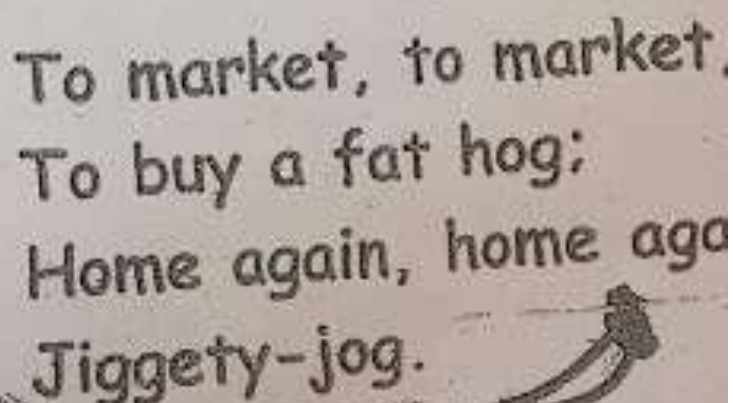 To market, to market,
To buy a fat hog;
Home again, home aga
Jiggety-jog.